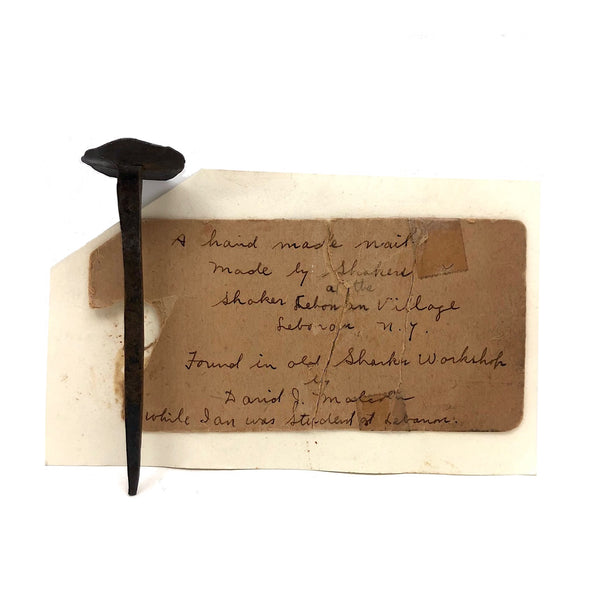 A hand made nail
Made by Shakers
at the
Shaker Lebonan Village
Lebonon, N.Y.
Found in old Sharkr Workshop
by
David J.
while Ian was student at Lebanon.